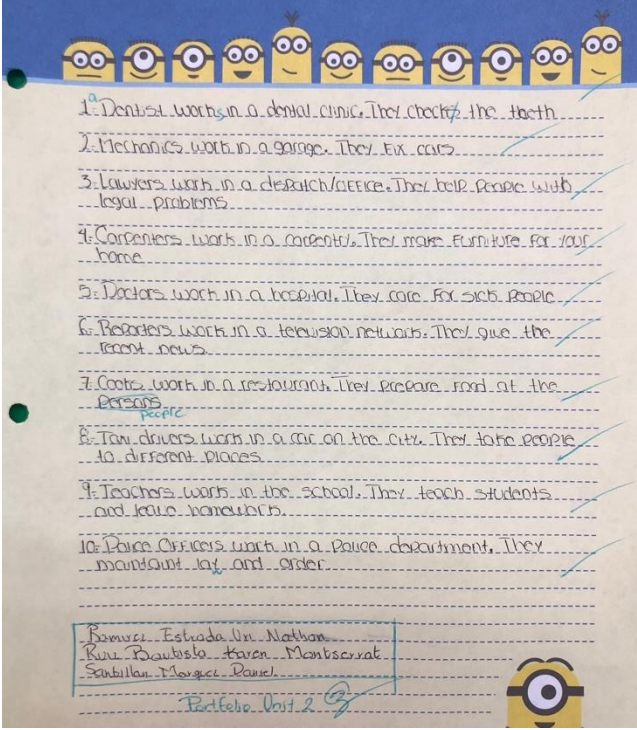 1. a Dentist works in a dental clinic. They checks the theeth
2. Mechanics work in a garage. They fix cars
3. Lawyers work in a despatch/office. They help people with
legal problems
4. Carpenters work in a carpentry. They make furniture for your
home
5. Doctors work in a hospital. They care for sick people
6. Reporters work in a television network. They give the
recent news.
7. Cooks work in a restaurant. They prepare food at the
persons
people
8. Taxi drivers work in a car on the city. They take people
to different places
9. Teachers work in the school. They teach students
and leave homeworks.
10. Police Officers work in a Police department. They
law and order
Estrada Nathan
Bautista Karen Montserrat
Santillan Daniel
Portfolio Unit 2